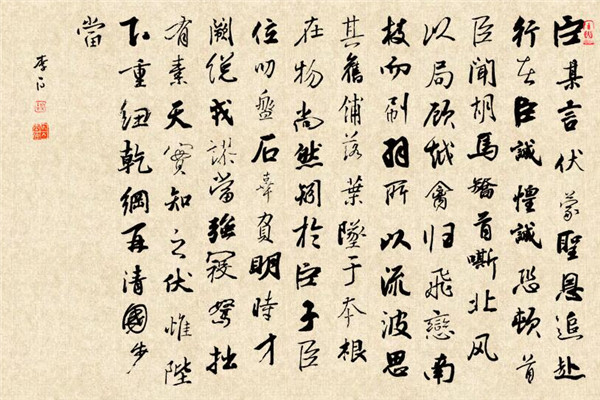 臣某言伏蒙聖恩追赴
行在臣誠惶誠恐頓首
臣聞胡馬矯首嘶北風
以局顧越禽归飛戀南
枝而刷羽所以流波思
其舊浦落葉墜于本根
在物尚然矧於臣子臣
位叨盤石辜負明時才
闕總戎謬當强寇駑拙
有素天實知之伏惟陛
下重紐乾綱再清國步
當
李